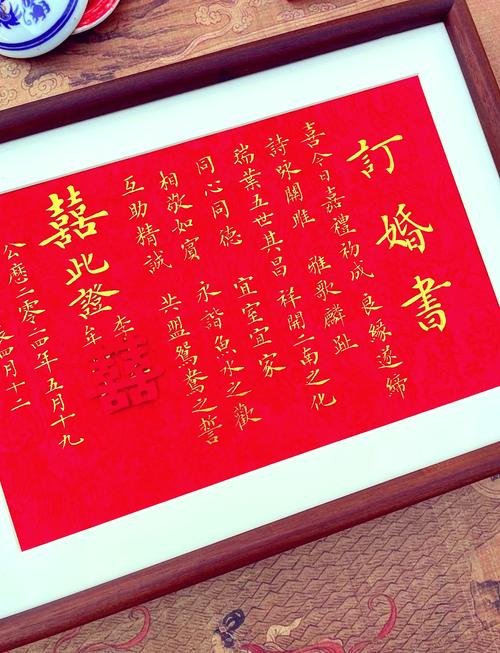 訂婚書
喜今日嘉禮初成 良緣遂締
詩咏關雎 雅歌麟趾
瑞葉五世其昌 祥開二南之化
同心同德 宜室宜家
相敬如賓 永諧魚水之歡
互助精誠 共盟鴛鴦之誓
李
囍
牟
囍此證
公歷二零二四年五月十九
辰四月十二